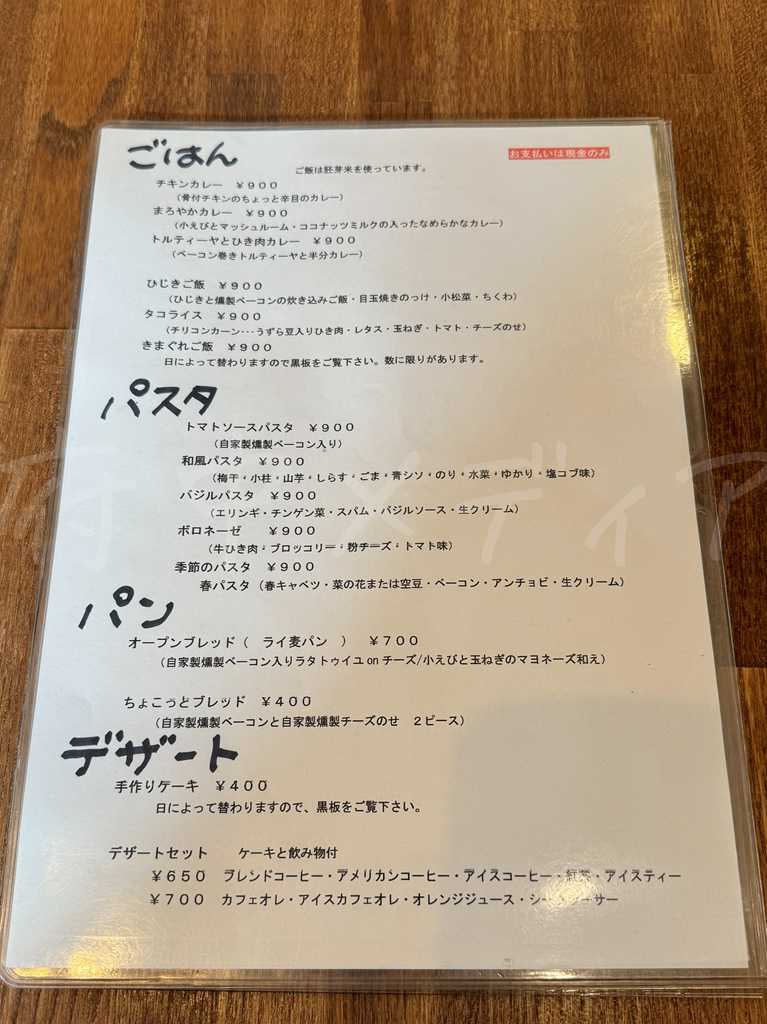 ごはん
お支払いは現金のみ
ご飯は胚芽米を使っています。
チキンカレー ￥９００
（骨付チキンのちょっと辛目のカレー）
まろやかカレー ￥９００
（小えびとマッシュルーム・ココナッツミルクの入ったなめらかなカレー）
トルティーヤとひき肉カレー ￥９００
（ベーコン巻きトルティーヤと半分カレー）
ひじきご飯 ￥９００
（ひじきと燻製ベーコンの炊き込みご飯・目玉焼きのっけ・小松菜・ちくわ）
タコライス ￥９００
（チリコンカーン･･･うずら豆入りひき肉・レタス・玉ねぎ・トマト・チーズのせ）
きまぐれご飯 ￥９００
日によって替わりますので黒板をご覧下さい。数に限りがあります。
パスタ
トマトソースパスタ ￥９００
（自家製燻製ベーコン入り）
和風パスタ ￥９００
（梅干・小柱・山芋・しらす・ごま・青シソ・のり・水菜・ゆかり・塩コブ味）
バジルパスタ ￥９００
（エリンギ・チンゲン菜・スパム・バジルソース・生クリーム）
ボロネーゼ ￥９００
（牛ひき肉・ブロッコリー・粉チーズ・トマト味）
季節のパスタ ￥９００
春パスタ（春キャベツ・菜の花または空豆・ベーコン・アンチョビ・生クリーム）
パン
オープンブレッド（ ライ麦パン ） ￥７００
（自家製燻製ベーコン入りラタトゥイユ on チーズ/小えびと玉ねぎのマヨネーズ和え）
ちょこっとブレッド ￥４００
（自家製燻製ベーコンと自家製燻製チーズのせ ２ピース）
デザート
手作りケーキ ￥４００
日によって替わりますので、黒板をご覧下さい。
デザートセット ケーキと飲み物付
￥６５０ ブレンドコーヒー・アメリカンコーヒー・アイスコーヒー・紅茶・アイスティー
￥７００ カフェオレ・アイスカフェオレ・オレンジジュース・